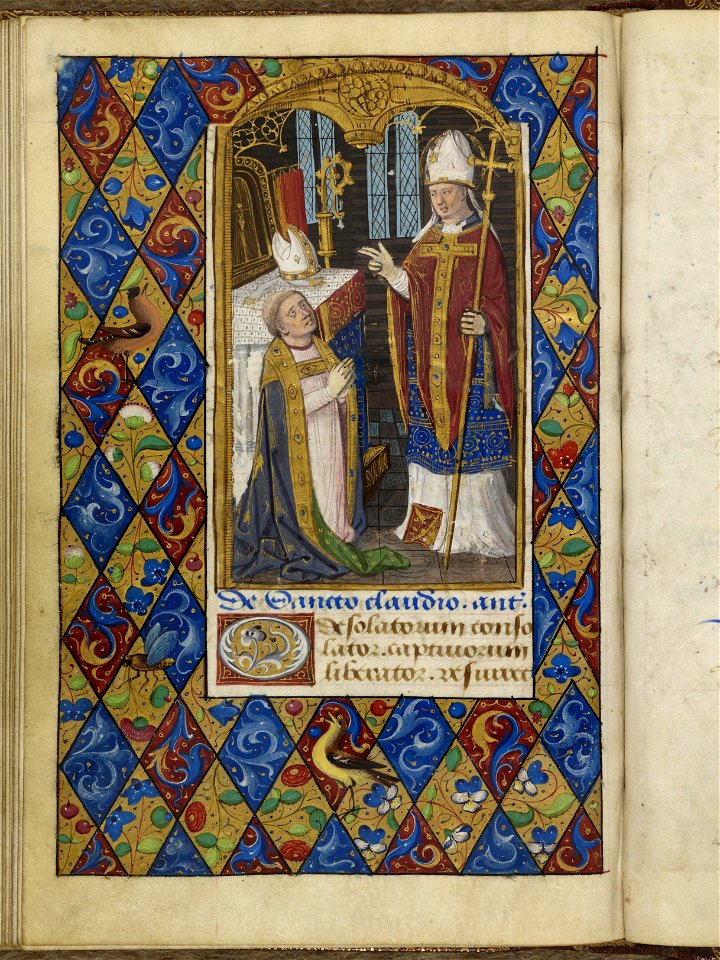 De Sancto claudio. ant.
Desolatorum conso
lator. captiuorum
liberator. resurrect